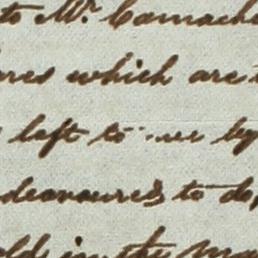 to Mr. Camach
ares which are
left to me by
deavoured to do
old in the ma